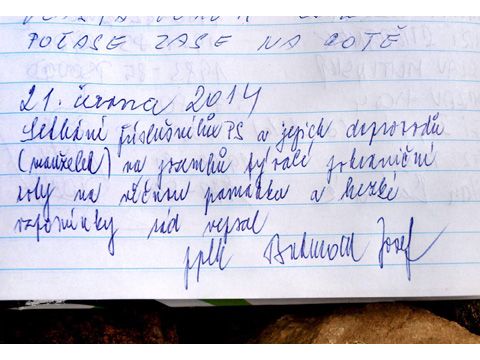 POČASÍ ZASE NA
21. června 2014
Setkání příslušníků PS a jejich doprovodů
(manželek) na bývalé pohraniční
roty na věčnou památku a hezké
vzpomínky rád vepsal
Josef